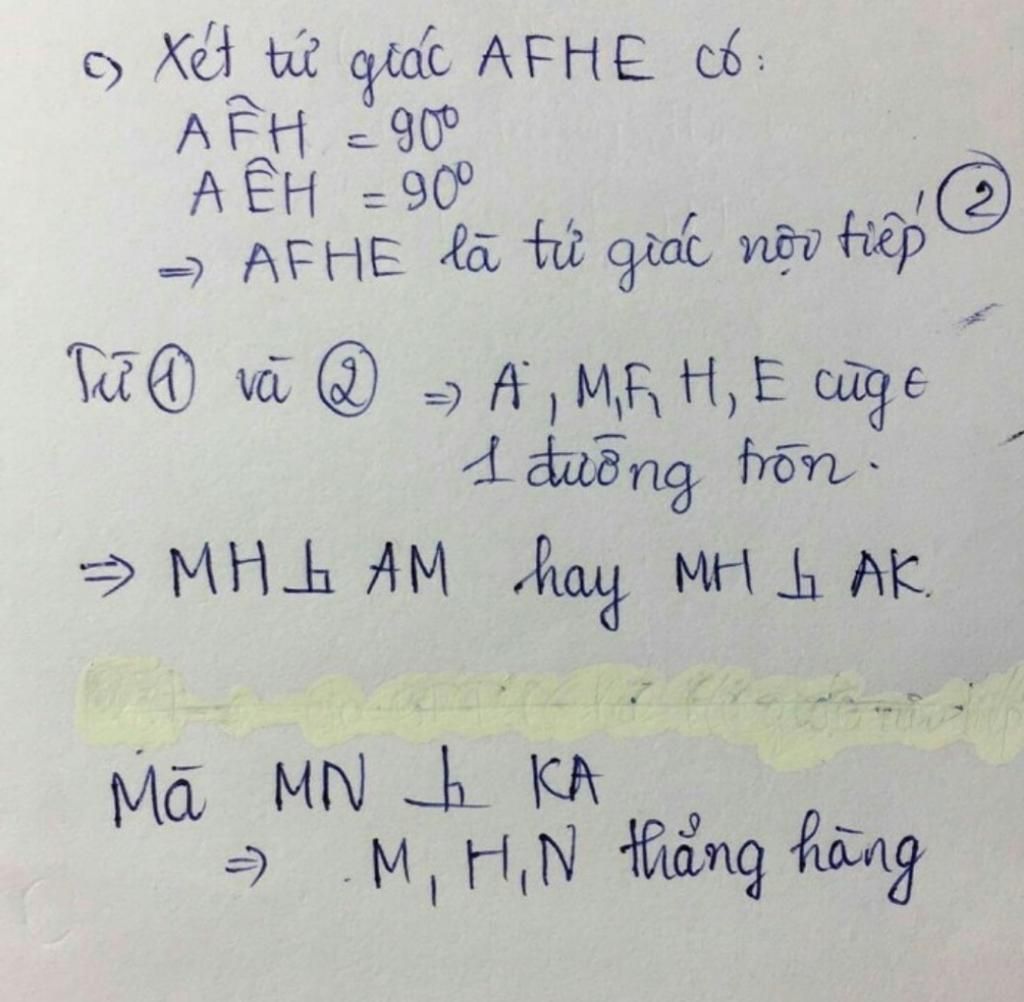 c) Xét tứ giác AFHE có:
AF̂H = 90⁰
AÊH = 90⁰
⇒ AFHE là tứ giác nội tiếp ②
Từ ① và ② ⇒ A, M, F, H, E cùg ∈
1 đường tròn.
⇒ MH ⊥ AM hay MH ⊥ AK.
Mà MN ⊥ KA
⇒ M, H, N thẳng hàng